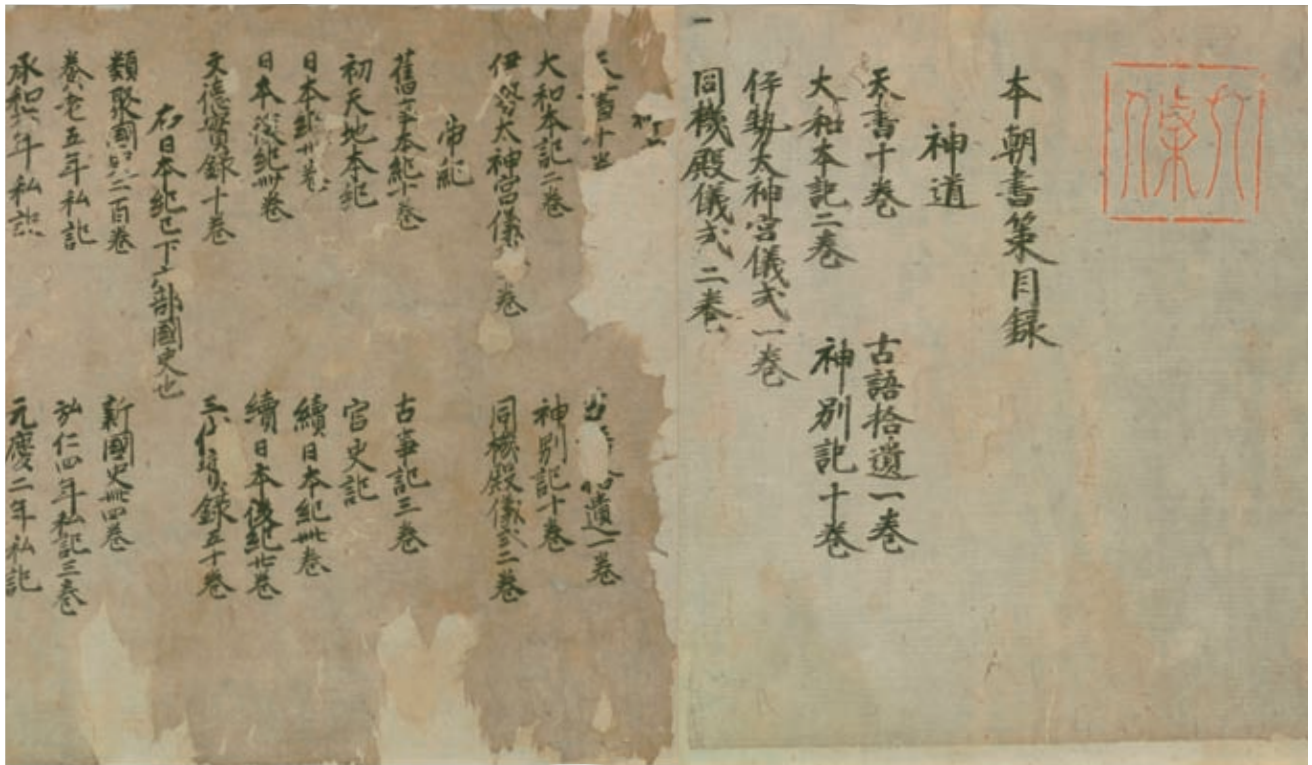 九條
本朝書策目録
神道
天書十巻 古語拾遺一巻
大和本記二巻 神別記十巻
伊勢太神宮儀式一巻
同機殿儀式二巻
一
書十 遺一巻
大和本記二巻 神別記十巻
伊勢太神宮儀 巻 同機殿儀式二巻
帝紀
舊事本紀十巻 古事記三巻
初天地本紀 官史記
日本紀卅巻 續日本紀卌巻
日本後紀卌巻 續日本後紀廿巻
文徳實録十巻 三代實録五十巻
右日本紀已下六部國史也
類聚國史二百巻 新國史卌四巻
養老五年私記 弘仁四年私記三巻
承和六年私記 元慶二年私記